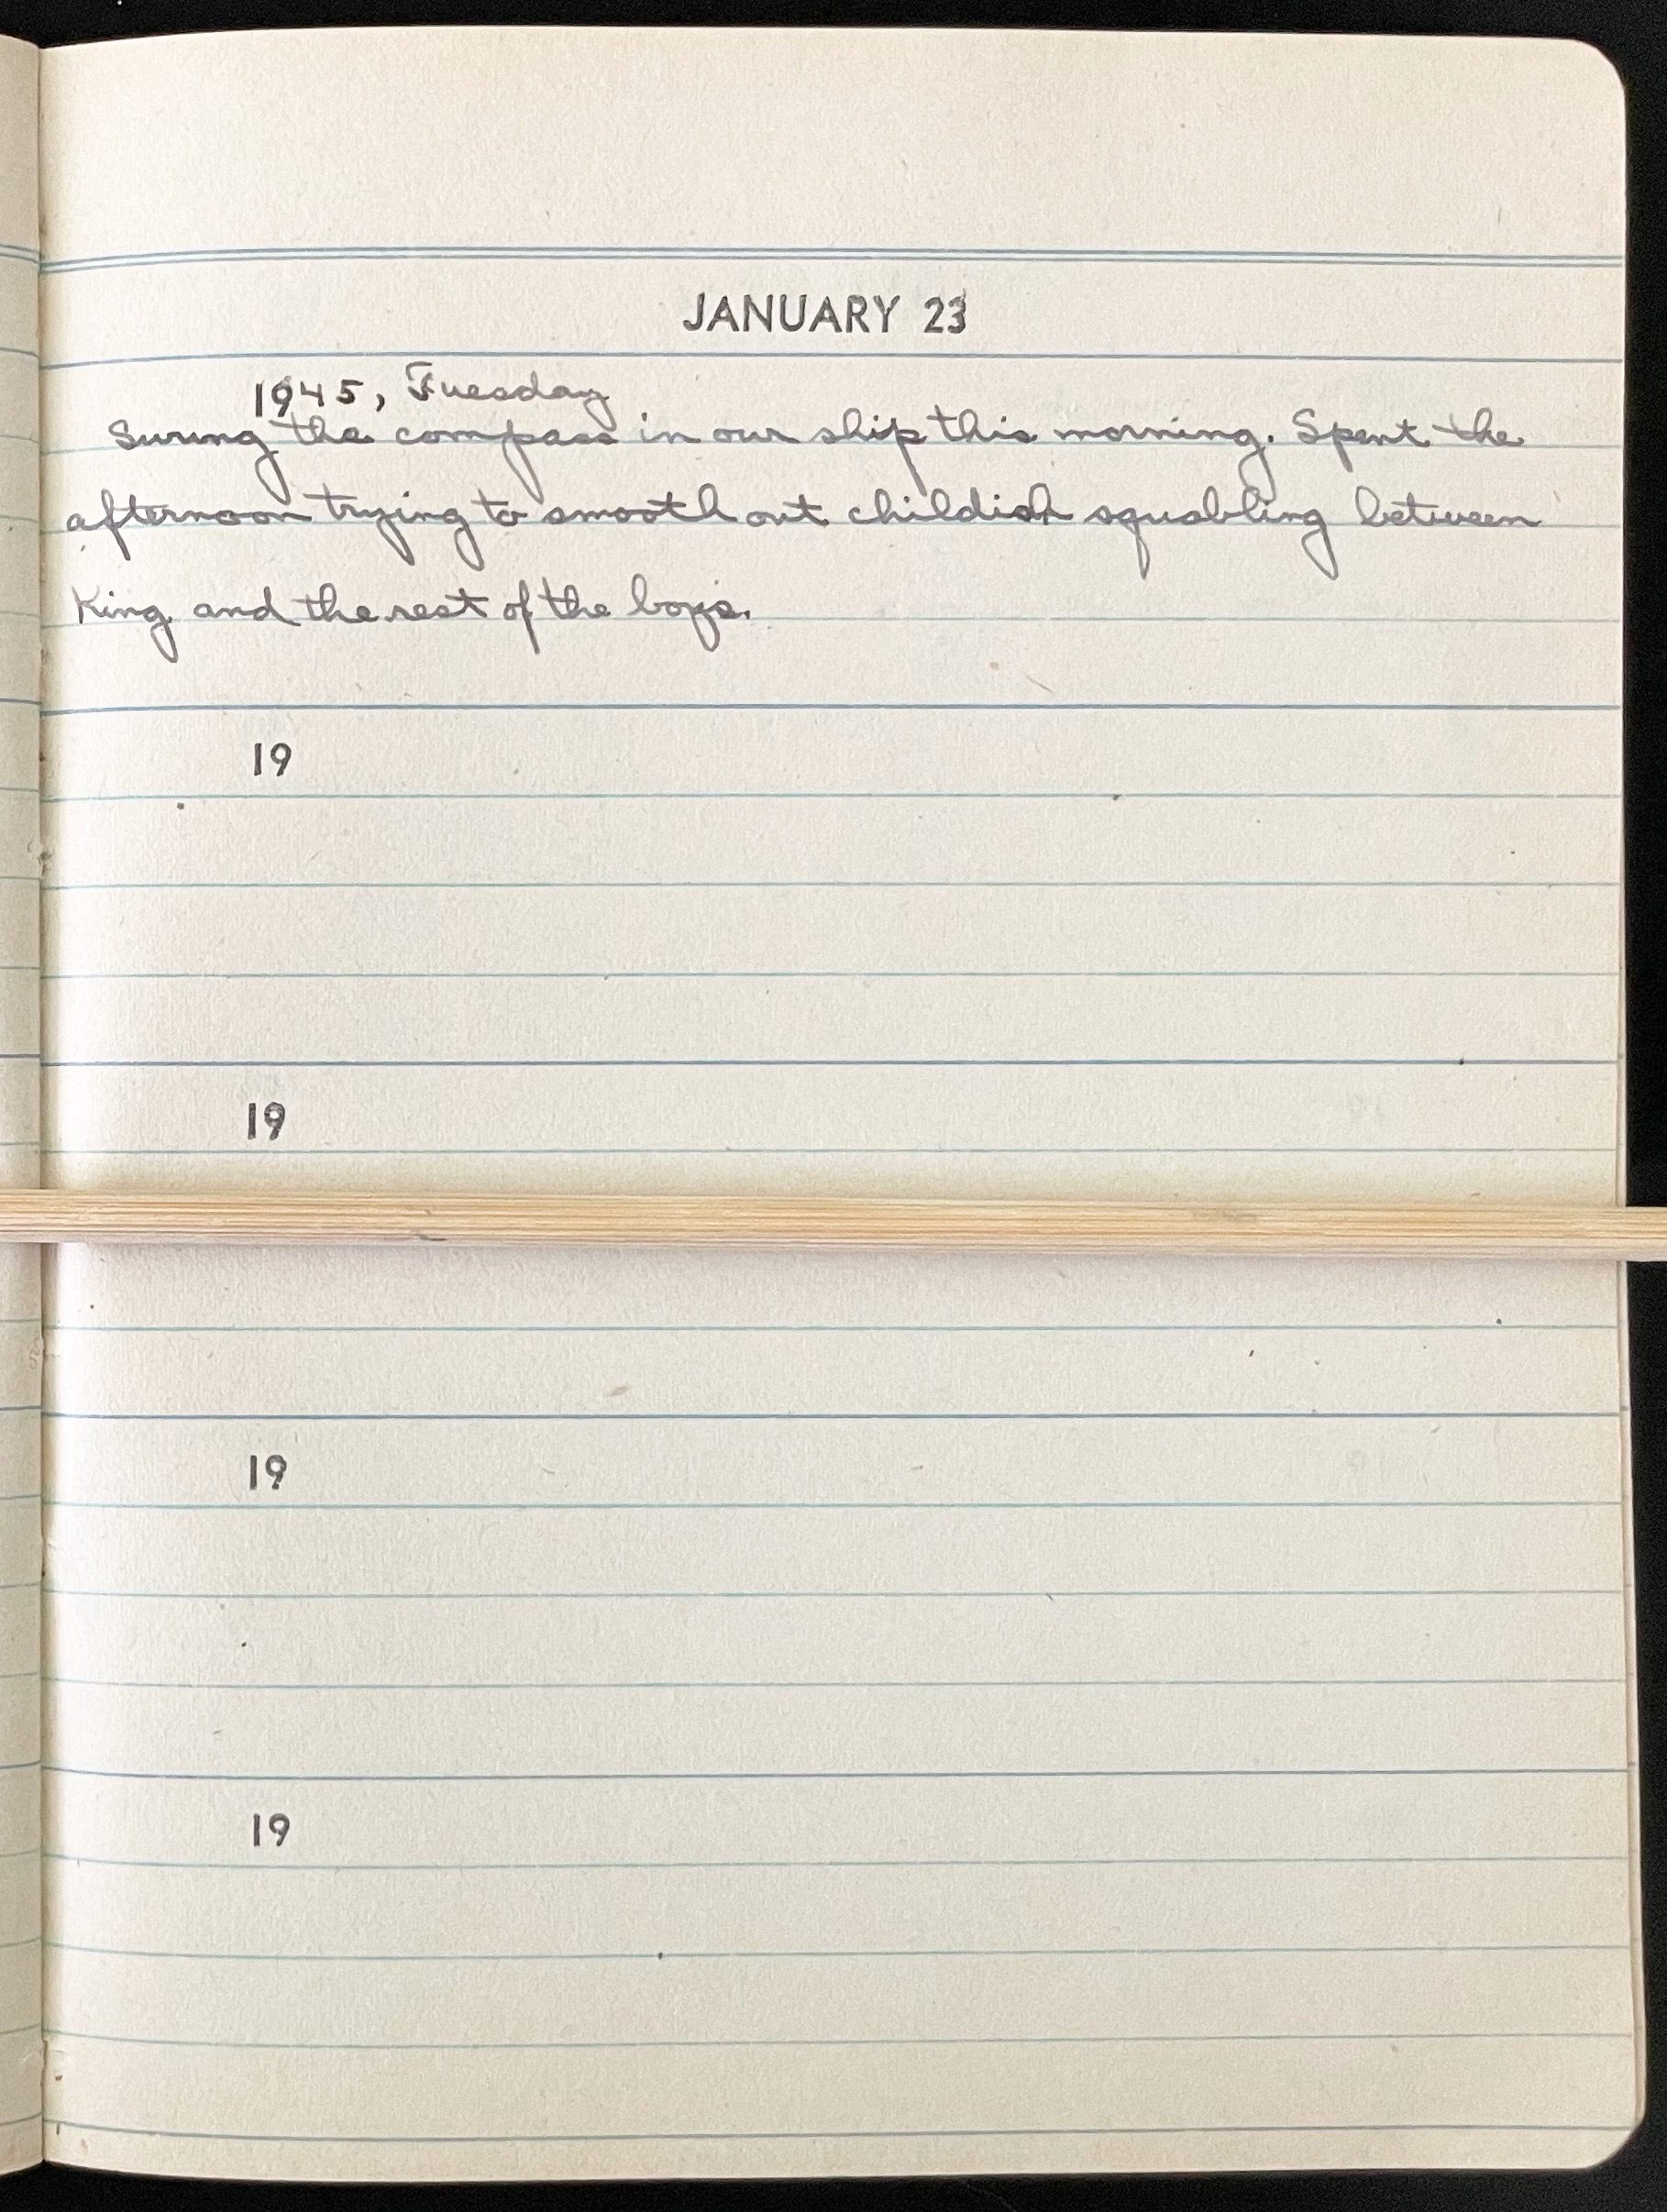 JANUARY 23
1945, Tuesday
Swung the compass in our ship this morning. Spent the
afternoon trying to smooth out childish squabling between
King and the rest of the boys.
19
19
19
19